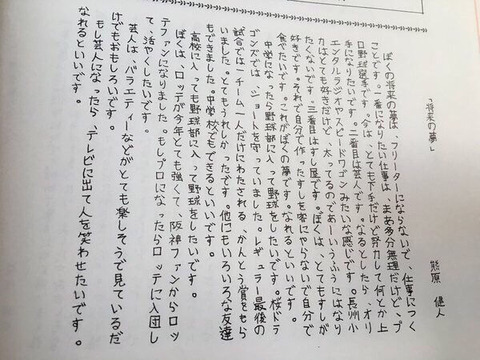 「将来の夢」
熊原 健人
ぼくの将来の夢は、フリーターにならないで、仕事につく
ことです。一番になりたい仕事は、まあ多分無理だけど、プ
ロ野球選手です。今は、とても下手だけど努力して何とか上
手になりたいです。二番目は芸人です。なるとしたら、オリ
エンタルラジオやスピードワゴンみたいな感じです。長州小
力はとても好きだけど、太ってるのであーいうふうにはなり
たくないです。三番目はすし屋です。ぼくは、とてもすしが
好きです。それで自分で作ったすしを客にやらないで自分で
食べたいです。これがぼくの夢です。なれるといいです。
中学になったら野球部に入って野球をしたいです。桜ドラ
ゴンズでは、ショートを守っていました。レギュラー最後の
試合では、チーム一人だけにわたされる、かんとう賞をもら
いました。とてもうれしかったです。他にもいろいろな友達
もできました。中学校でもできるといいです。
高校に入っても野球部に入って野球をしたいです。
ぼくは、ロッテが今年とても強くて、阪神ファンからロッ
テファンになりました。もしプロになったらロッテに入団し
て、活やくしたいです。
芸人は、バラエティーなどがとても楽しそうで見ているだ
けでもおもしろいです。
もし芸人になったら、テレビに出て人を笑わせたいです。
なれるといいです。